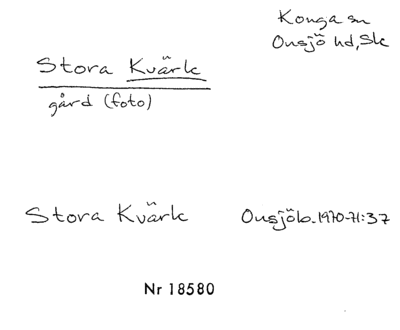 Konga sn
Onsjö hd, Sk
Stora Kvärk
gård (foto)
Stora Kvärk
Onsjöb. 1970-71:37
Nr 18580